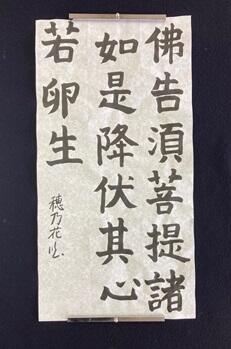 佛告須菩提諸
如是降伏其心
若卵生
穂乃花